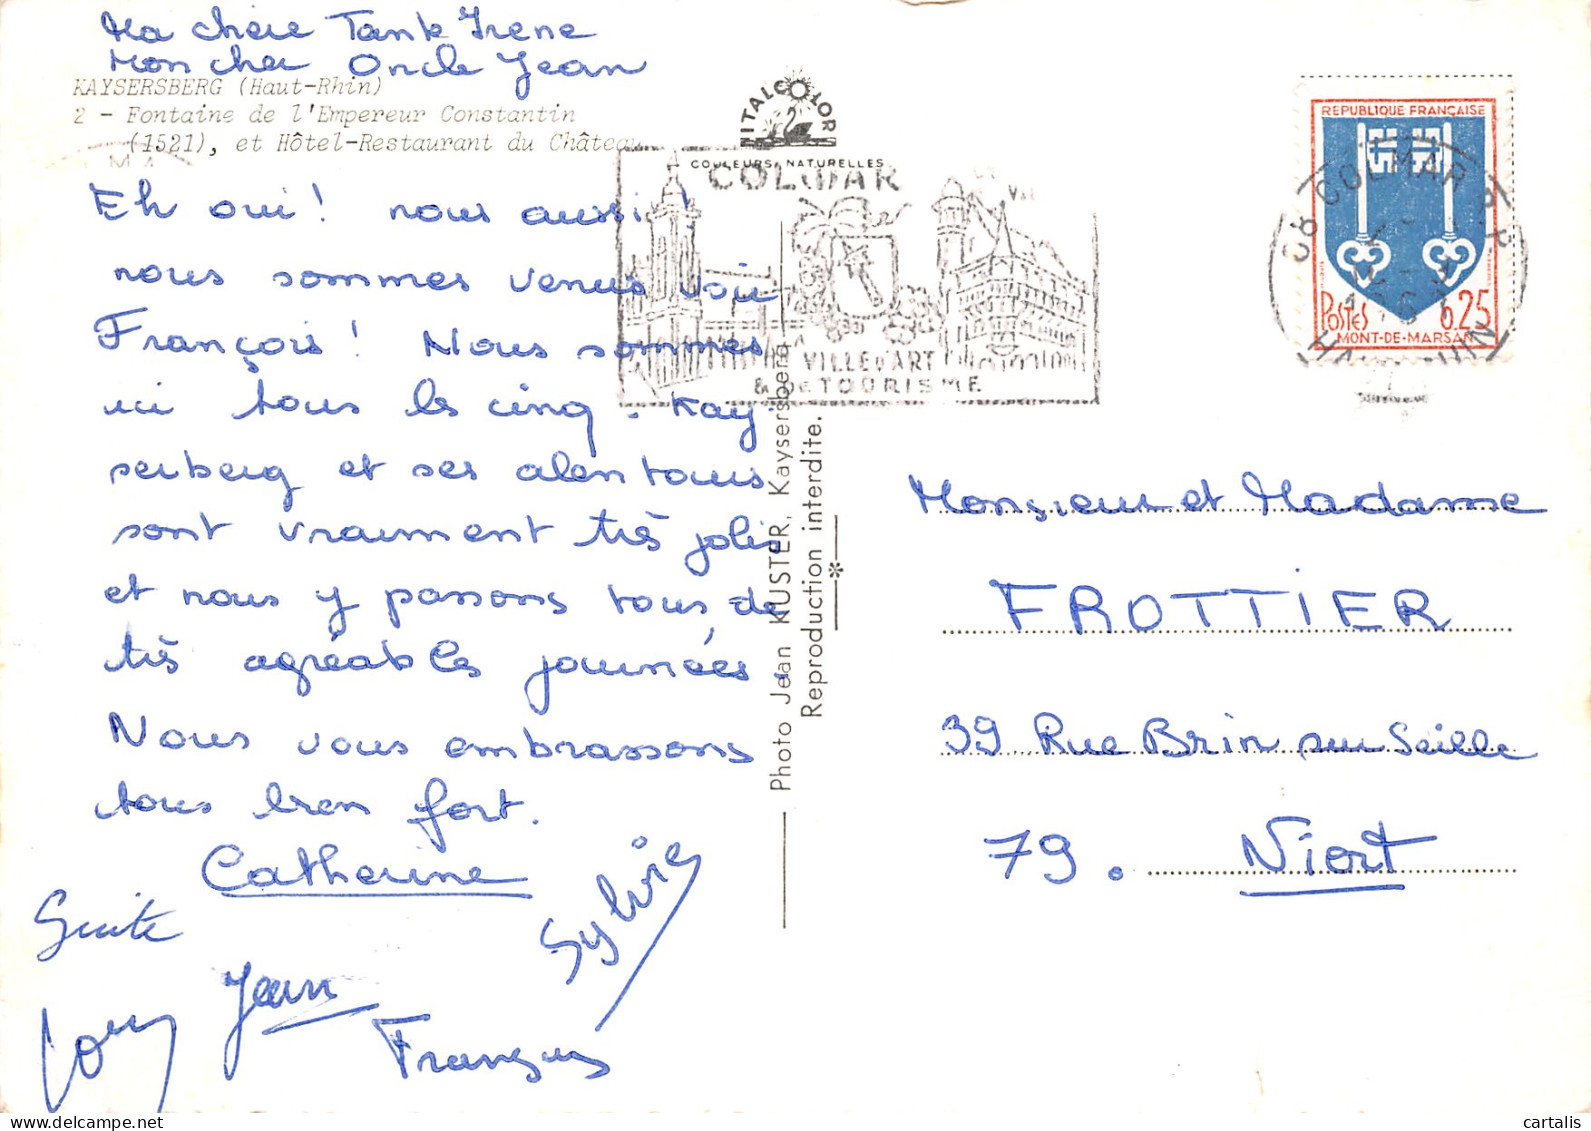 Ma chère Tante Irène
Mon cher Oncle Jean
KAYSERSBERG (Haut-Rhin)
2 - Fontaine de l'Empereur Constantin
(1521), et Hôtel-Restaurant du Château
Eh oui! nous aussi!
nous sommes venus voir
François! Nous sommes
ici tous les cinq. Kay-
serberg et ses alentours
sont vraiment très jolis
et nous y passons tous de
très agréables journées.
Nous vous embrassons
tous bien fort.
Catherine
Sylvie
Jean
François
NITALCOLOR
COULEURS NATURELLES
COLMAR
VILLE D'ART
& DE TOURISME
Photo Jean KUSTER, Kaysersberg
Reproduction interdite.
REPUBLIQUE FRANÇAISE
POSTES 0.25
MONT-DE-MARSAN
COLMAR R.P.
HAUT-RHIN
Monsieur et Madame
FROTTIER
39 Rue Brin sur Seille
79. Niort
cartalis